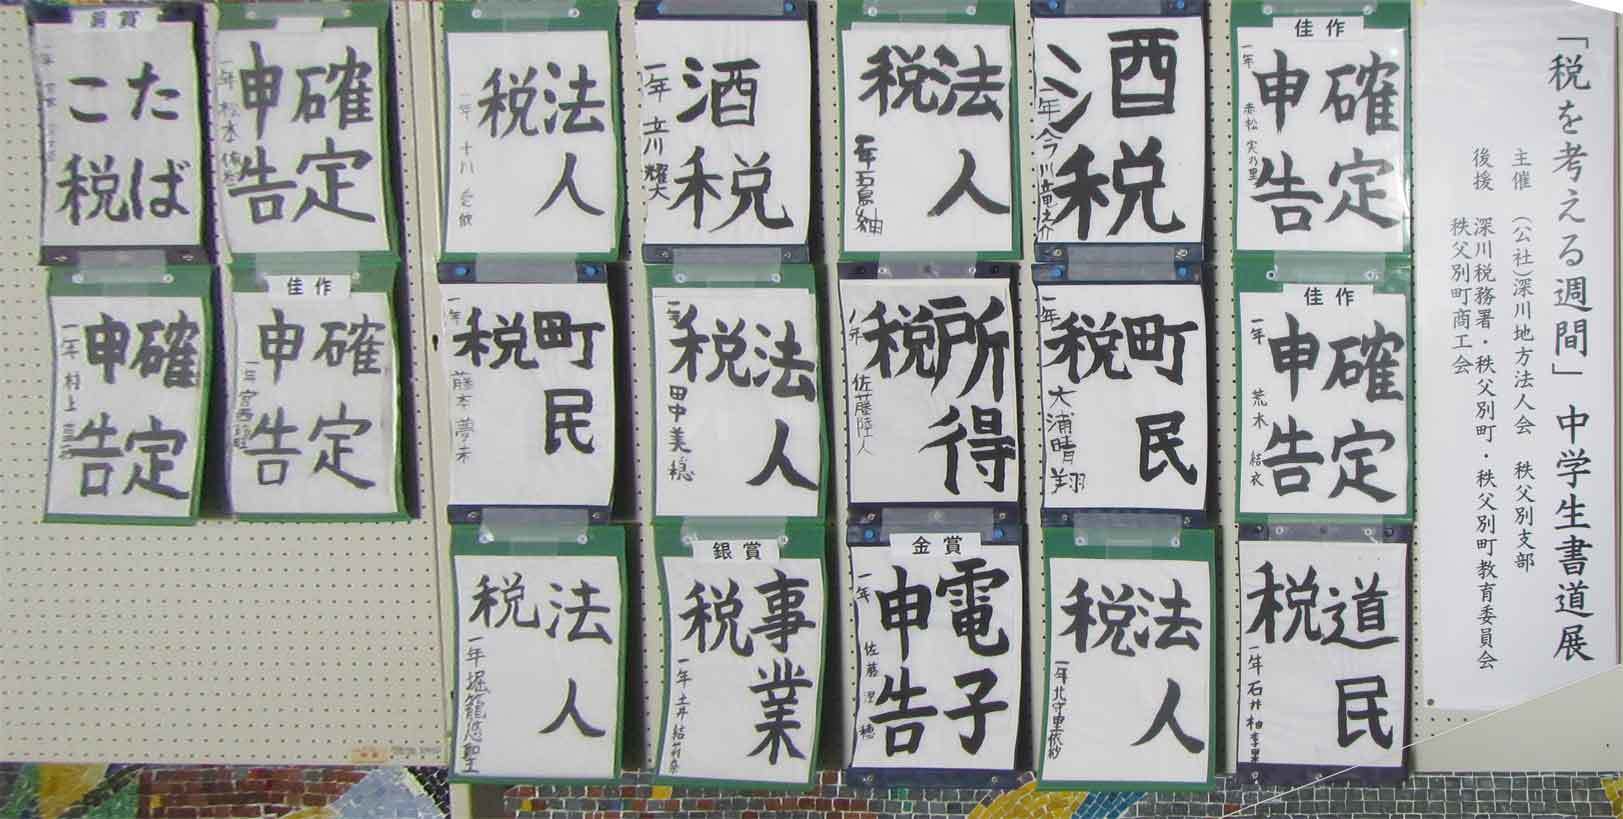 「税を考える週間」中学生書道展
主催　(公社)深川地方法人会　秩父別支部
後援　深川税務署・秩父別町・秩父別町教育委員会
秩父別町商工会
佳作
確定
申告
一年　赤松　実乃里
佳作
確定
申告
一年　荒木　結衣
道民
税
一年　石井　柚季里
酒
税
一年　今川竜之介
町民
税
一年　大浦晴翔
法人
税
一年　北守里依紗
法人
税
一年　石島紬
所得
税
一年　佐藤陸人
金賞
電子
申告
一年　佐藤　澄穂
酒
税
一年　立川耀大
法人
税
一年　田中美穂
銀賞
事業
税
一年　土井
法人
税
一年　十八
町民
税
一年　藤本夢未
法人
税
一年　堀籠悠聖
確定
申告
一年　松本
佳作
確定
申告
一年　宮西
銅賞
たば
こ税
一年
確定
申告
一年　村上